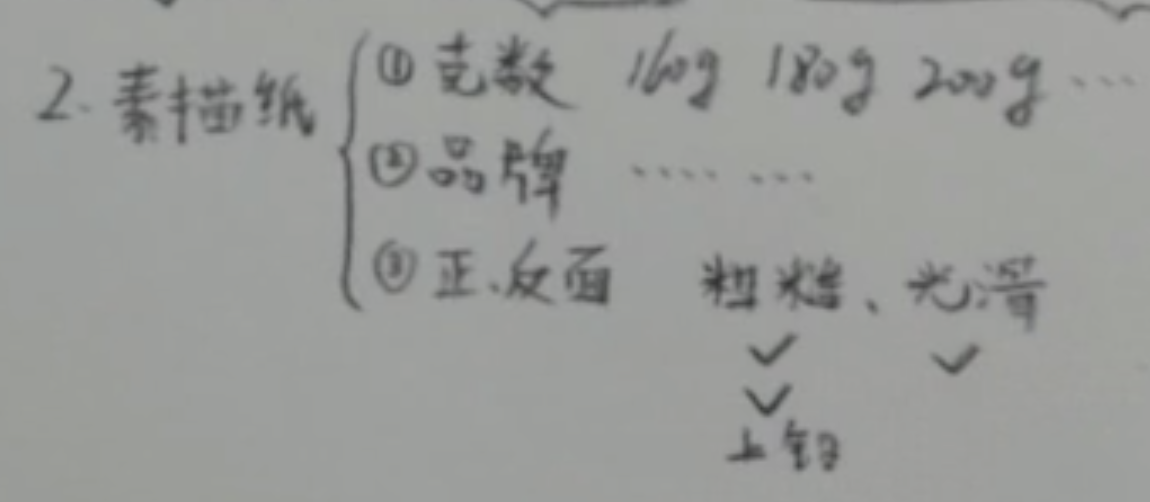 2. 素描纸
① 克数 160g 180g 200g ……
② 品牌 …… …
③ 正、反面 粗糙、光滑
✓ ✓
✓
上铅